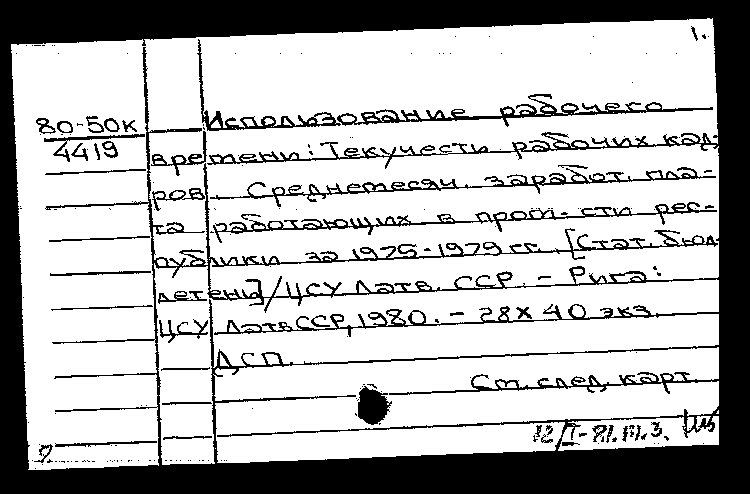 1.
80-50к Использование рабочего
4419 времени: Текучести рабочих кад-
ров. Среднемесяч. заработ. пла-
та работающих в пром-сти рес-
публики за 1975-1979 гг. [Стат. бюл-
летени]/ЦСУ Латв. ССР. - Рига:
ЦСУ ЛатвССР, 1980. - 28х 40 экз.
ДСП.
См. след. карт.
12/I-81.